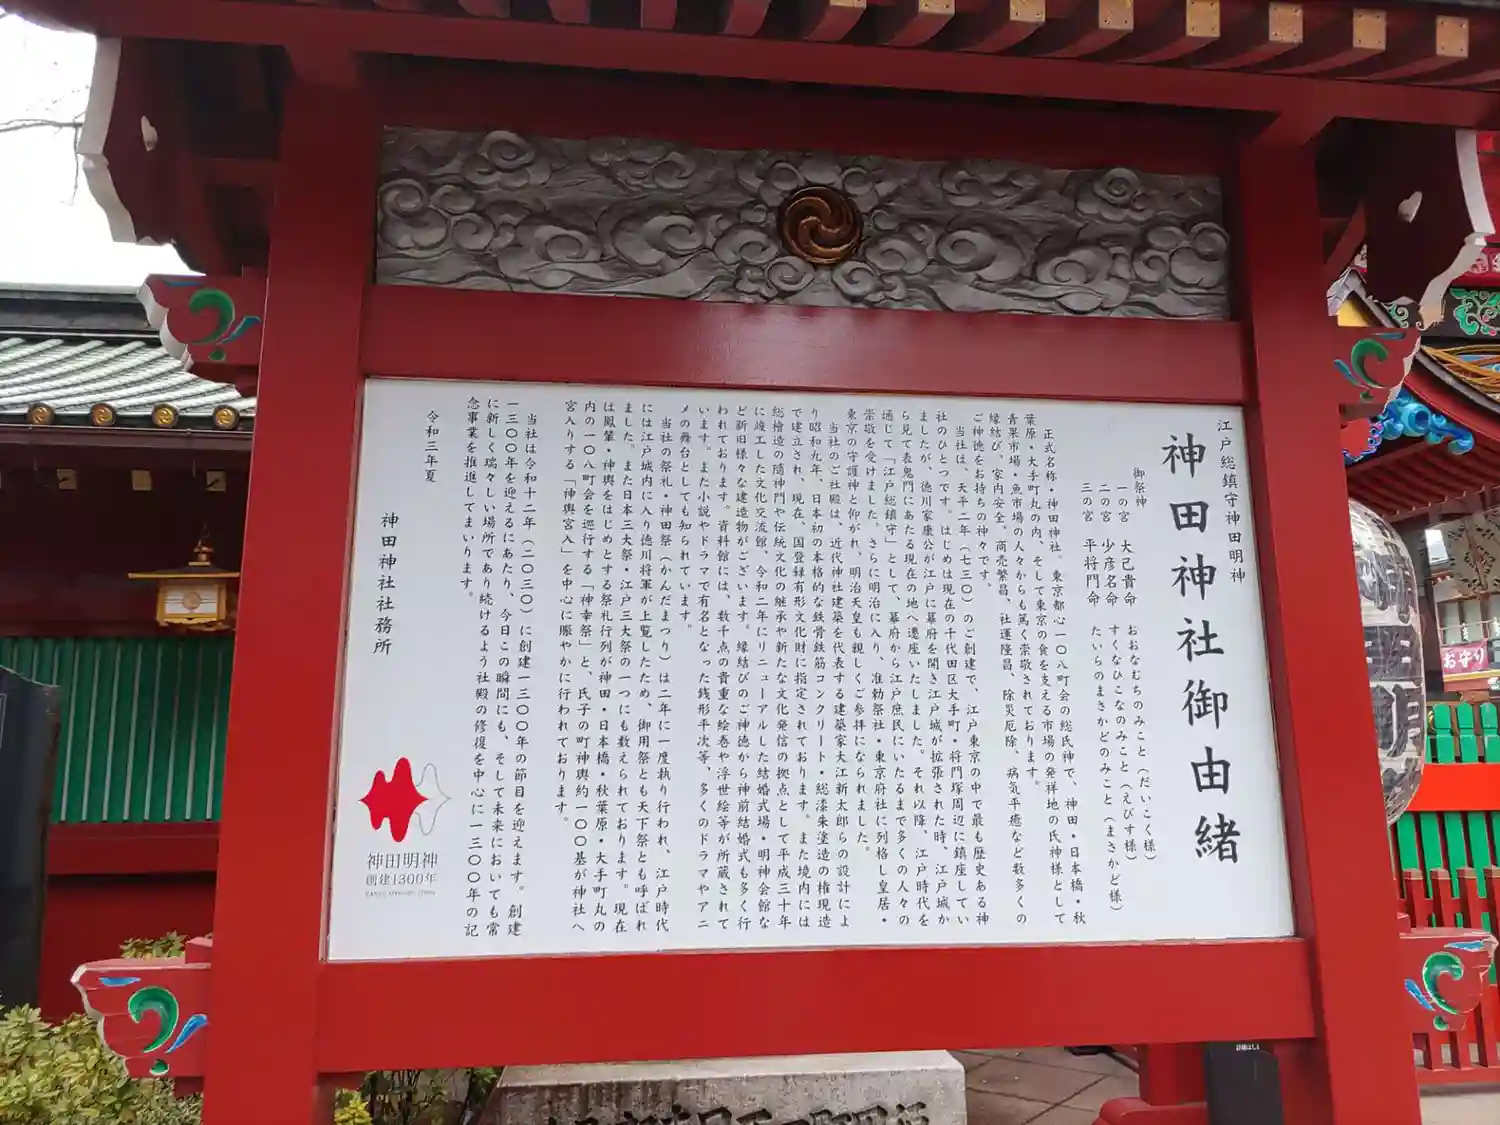 江戸総鎮守神田明神
神田神社御由緒
御祭神
一の宮 大己貴命 おおなむちのみこと（だいこく様）
二の宮 少彦名命 すくなひこなのみこと（えびす様）
三の宮 平将門命 たいらのまさかどのみこと（まさかど様）
正式名称・神田神社。東京都心一〇八町会の総氏神で、神田・日本橋・秋
葉原・大手町丸の内、そして東京の食を支える市場の発祥地の氏神様として
青果市場・魚市場の人々からも篤く崇敬されております。
縁結び、家内安全、商売繁昌、社運隆昌、除災厄除、病気平癒など数多くの
ご神徳をお持ちの神々です。
当社は、天平二年（七三〇）のご創建で、江戸東京の中で最も歴史ある神
社のひとつです。はじめは現在の千代田区大手町・将門塚周辺に鎮座してい
ましたが、徳川家康公が江戸に幕府を開き江戸城が拡張された時、江戸城か
ら見て表鬼門にあたる現在の地へ遷座いたしました。それ以降、江戸時代を
通じて「江戸総鎮守」として、幕府から江戸庶民にいたるまで多くの人々の
崇敬を受けました。さらに明治に入り、准勅祭社・東京府社に列格し皇居・
東京の守護神と仰がれ、明治天皇も親しくご参拝になられました。
当社のご社殿は、近代神社建築を代表する建築家大江新太郎らの設計によ
り昭和九年、日本初の本格的な鉄骨鉄筋コンクリート・総漆朱塗造の権現造
で建立され、現在、国登録有形文化財に指定されております。また境内には
総檜造の隨神門や伝統文化の継承や新たな文化発信の拠点として平成三十年
に竣工した文化交流館、令和二年にリニューアルした結婚式場・明神会館な
ど新旧様々な建造物がございます。縁結びのご神徳から神前結婚式も多く行
われております。資料館には、数千点の貴重な絵巻や浮世絵等が所蔵されて
います。また小説やドラマで有名となった銭形平次等、多くのドラマやアニ
メの舞台としても知られています。
当社の祭礼・神田祭（かんだまつり）は二年に一度執り行われ、江戸時代
には江戸城内に入り徳川将軍が上覧したため、御用祭とも天下祭とも呼ばれ
ました。また日本三大祭・江戸三大祭の一つにも数えられております。現在
は鳳輦・神輿をはじめとする祭礼行列が神田・日本橋・秋葉原・大手町丸の
内の一〇八町会を巡行する「神幸祭」と、氏子の町神輿約一〇〇基が神社へ
宮入りする「神輿宮入」を中心に賑やかに行われております。
当社は令和十二年（二〇三〇）に創建一三〇〇年の節目を迎えます。創建
一三〇〇年を迎えるにあたり、今日この瞬間にも、そして未来においても常
に新しく瑞々しい場所であり続けるよう社殿の修復を中心に一三〇〇年の記
念事業を推進してまいります。
令和三年夏
神田神社社務所
神田明神
創建1300年
お守り